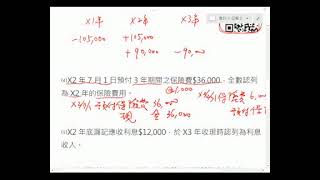 X1年 X2年 X3年
-105,000 +105,000
+90,000 -90,000
(4)X2 年 7 月 1 日預付 3 年期間之保險費$36,000，全數認列
為 X2 年的保險費用。
預付保險費 36,000
現 金 36,000
(5)X2 年底漏記應收利息$12,000，於 X3 年收現時認列為利息
收入。